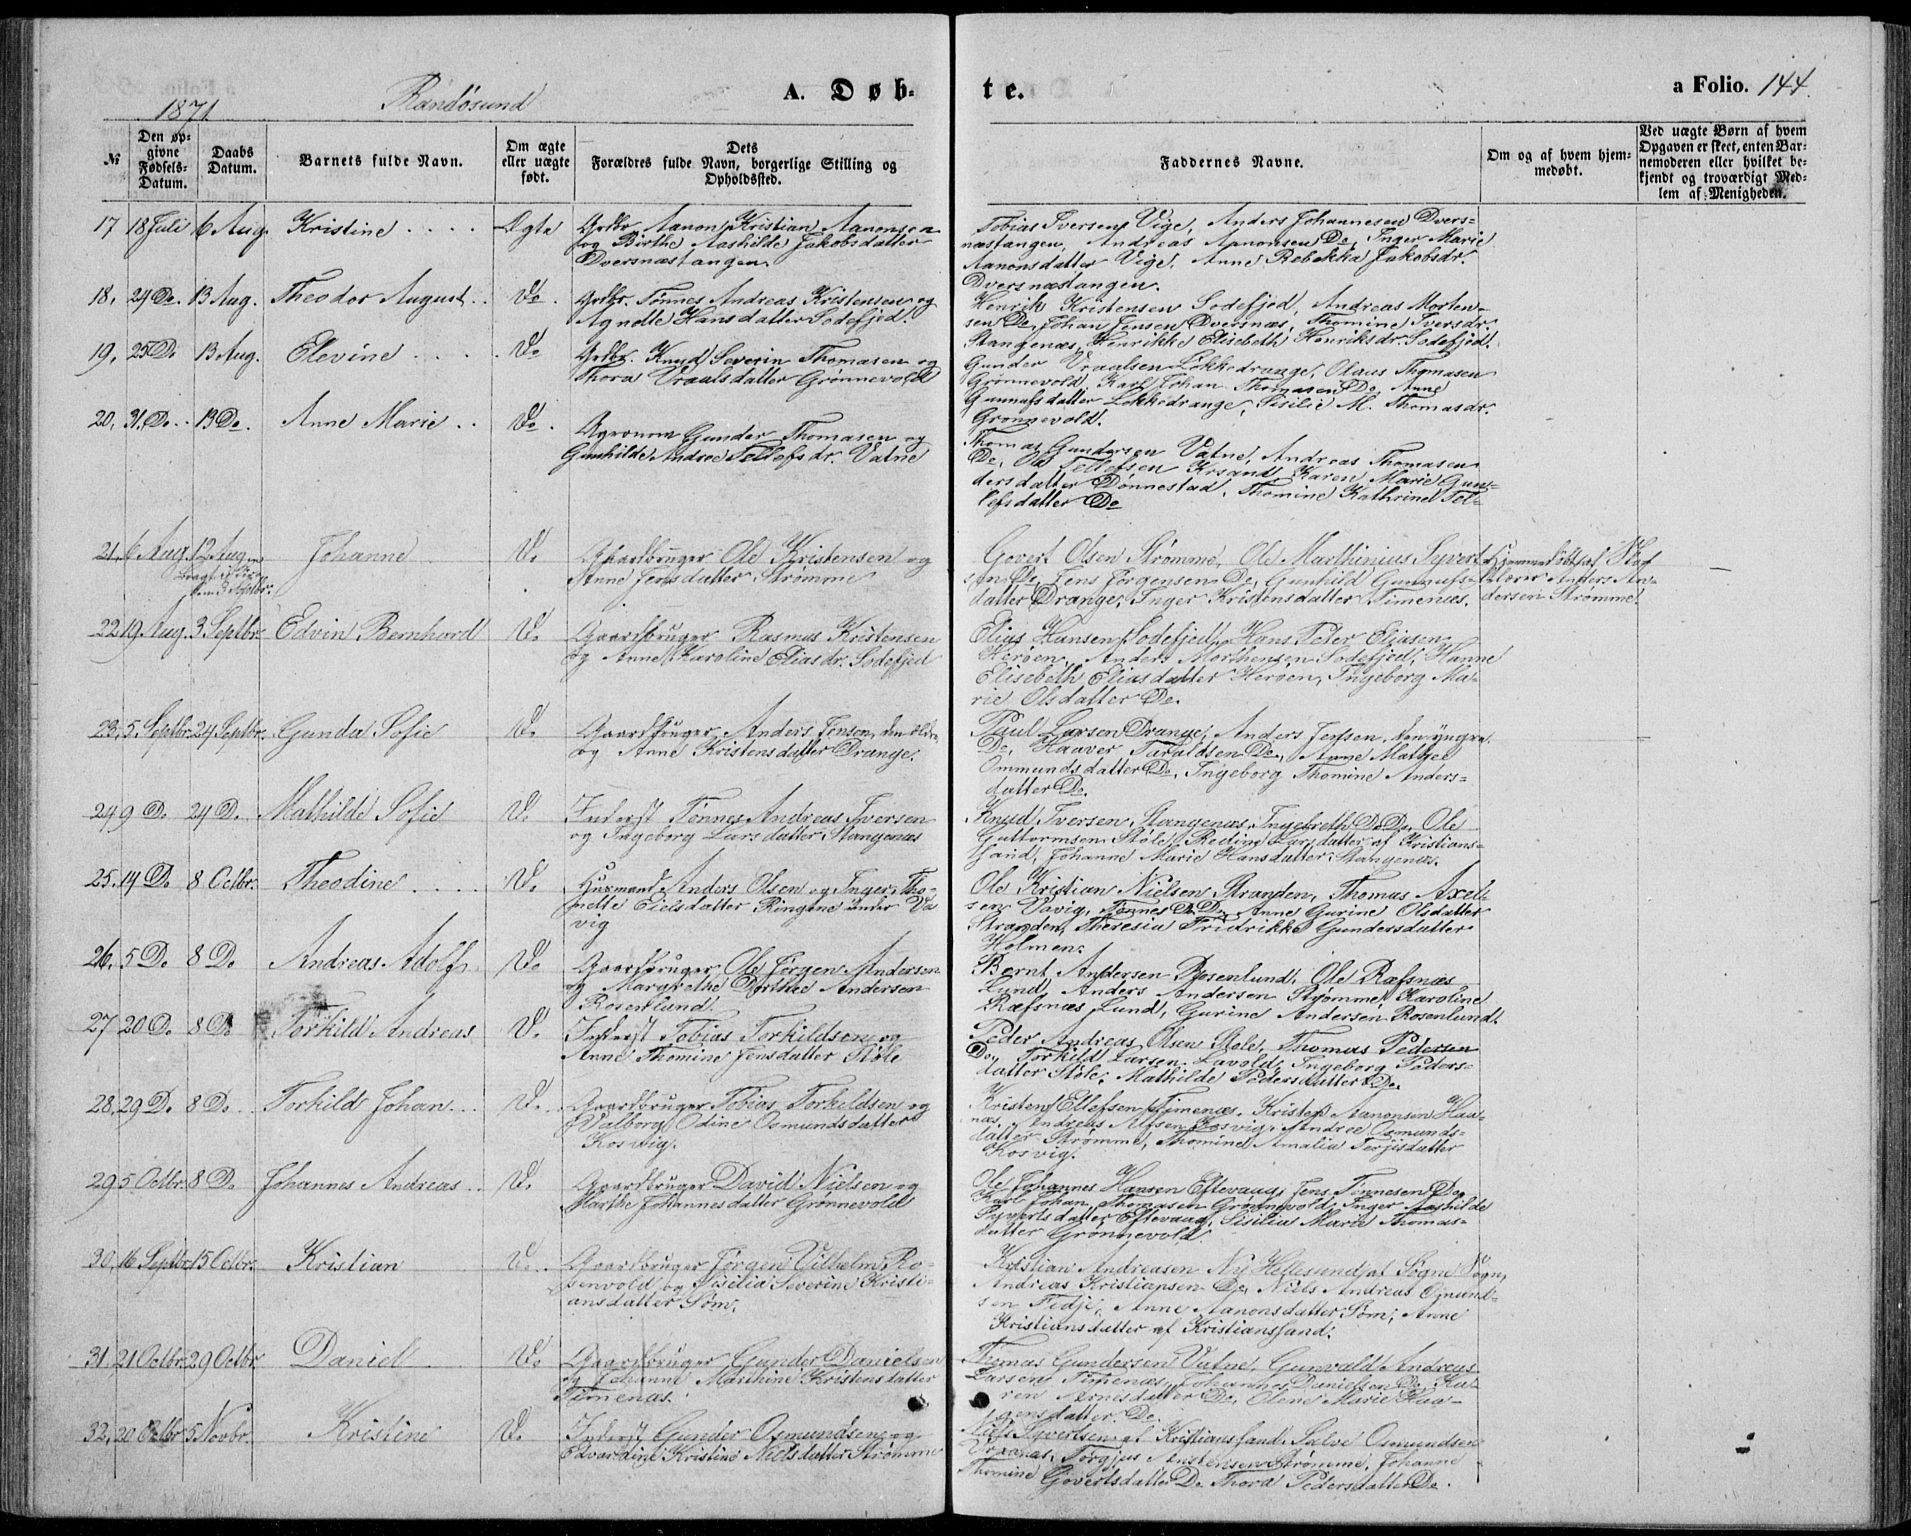 1871.
Randösund
A. Døb-
te.
a Folio. 144.
№
Den op-
givne
Fødsels-
Datum.
Daabs
Datum.
Barnets fulde Navn.
Om ægte
eller uægte
født.
Dets
Forældres fulde Navn, borgerlige Stilling og
Opholdssted.
Faddernes Navne.
Om og af hvem hjem-
medøbt.
Ved uægte Børn af hvem
Opgaven er skeet, enten Bar-
nemoderen eller hvilket be-
kjendt og troværdigt Med-
lem af Menigheden.
17 18 Juli 6 Aug. Kristine Ægte
Grdbr. Aanon Kristian Aanonsen
og Birthe Aashilde Jakobsdatter
Dversnæstangen
Tobias Iversen Vige, Anders Johannesen Dvers-
næstangen, Andreas Aanonsen Do, Inger Marie
Aanonsdatter Vige, Anne Rebekka Jakobsdr.
Dversnæstangen.
18, 24 Do. 13 Aug. Theodor August Do.
Grdbr. Tønnes Andreas Kristensen og
Agnette Hansdatter Sodefjed.
Henrik Kristensen Sodefjed, Andreas Morten-
sen Do, Johan Jensen Dversnæs, Thomine Iversdr.
Stangenæs, Henrikke Elisebeth Henriksdr. Sodefjed.
19, 25 Do 13 Aug. Elevine Do
Grdbr. Knud Severin Thomasen og
Thora Vraalsdatter Grønnevold
Gunder Vraalsen Løkkedrange, Olaus Thomasen
Grønnevold, Karl Johan Thomasen Do, Anne
Gunnufsdatter Løkkedrange, Sisilie M. Thomasdr.
Grønnevold.
20, 31. Do. 13 Do. Anne Marie Do.
Agronom Gunder Thomasen og
Gunhilde Andrea Tellefsdr. Vatne
Thomas Gundersen Vatne, Andreas Thomasen
Do, Ole Tellefsen Krsand, Karen Marie Gun-
dersdatter Dønnestad, Thomine Kathrine Tel-
lefsdatter Do
21, 6 Aug. 12 Aug.
Johanne Do
Gaardbruger Ole Kristensen og
Anne Jensdatter Strømme
Govert Olsen Strømme, Ole Marthinius Syvert-
sen Do, Jens Jørgensen Do, Gunhild Gunnufs-
datter Drange, Inger Kristensdatter Timenæs.
Hjemmedøbt af Skol
lærer Anders An-
dersen Strømme.
22 19 Aug. 3 Septbr. Edvin Bernhard Do
Gaardbruger Rasmus Kristensen
og Anne Karoline Eliasdr. Sodefjed
Elias Hansen Sodefjed, Hans Peder Eliasen
Herøen, Anders Morthensen Sodefjed, Hanne
Elisebeth Eliasdatter Herøen, Ingeborg Ma-
rie Olsdatter Do.
23, 5. Septbr. 24 Septbr. Gunda Sofie Do
Gaardbruger Anders Jensen den eldre
og Anne Kristensdatter Drange.
Paul Larsen Drange, Anders Jensen, den yngre
Do, Haaver Taraldsen Do, Anne Mathea
Ommundsdatter Do, Ingeborg Thomine Anders-
datter Do.
24 9 Do 24 Do Mathilde Sofie Do
Inderst Tønnes Andreas Iversen
og Ingeborg Larsdatter Stangenæs
Knud Iversen, Stangenæs, Ingebreth Do Do, Ole
Guttormsen Støle, Redine Larsdatter af Kristians-
sand, Johanne Marie Hansdatter Stangenæs.
25. 14 Do 8 Octbr. Theodine Do
Husmand Anders Olsen og Inger Tho-
mette Eielsdatter Ringene under Vaa
vig
Ole Kristian Nielsen Stranden, Thomas Axel-
sen Vaavig, Tønnes Do Do, Anne Gurine Olsdatter
Stranden, Theresia Fridrikke Gundersdatter
Holmen.
26, 5 Do 8 Do Andreas Adolf Do
Gaardbruger Ole Jørgen Andersen
og Margrethe Dorthea Andersen
Rosenlund
Bernt Andersen Rosenlund, Ole Ræfsnæs
Lund, Anders Andersen Strømme, Karoline
Ræfsnæs Lund, Gurine Andersen Rosenlund.
27 20 Do 8 Do Torkild Andreas Do
Inderst Tobias Torkildsen og
Anne Thomine Jensdatter Støle
Peder Andreas Olsen Støle, Thomas Pedersen
Do, Torkild Larsen Lavold, Ingeborg Peders-
datter Støle, Mathilde Pedersdatter Do.
28, 29 Do 8 Do Torkild Johan Do
Gaardbruger Tobias Torkildsen og
Valborg Odine Osmundsdatter
Kosvig.
Kristen Ellefsen Timenæs, Kristen Aanonsen Haa-
næs, Andreas Alfsen Kosvig, Andrea Osmunds-
datter Strømme, Thomine Amalia Terjesdatter
Kosvig.
29 5 Octbr. 8 Do Johannes Andreas Do
Gaardbruger David Nielsen og
Marthe Johannesdatter Grønnevold
Ole Johannes Hansen Eftevaag, Jens Tønnesen Do
Karl Johan Thomasen Grønnevold, Inger Aashilde
Syvertsdatter Eftevaag, Sisilia Marie Thomas-
datter Grønnevold.
30, 16 Septbr. 15 Octbr. Kristian Do
Gaardbruger Jørgen Vilhelm Ro-
senvold og Sisilia Severine Kristi-
ansdatter Søm.
Kristian Andreasen Ny Hellesund af Søgne Sogn,
Andreas Kristiansen Do, Niels Andreas Osmund-
sen Fedje, Anne Aanonsdatter Søm, Anne
Kristiansdatter af Kristianssand.
31, 21 Octbr. 29 Octbr. Daniel Do
Gaardbruger Gunder Danielsen
og Johanne Marthine Kristensdatter
Timenæs.
Thomas Gundersen Vatne, Gunvald Andreas
Larsen Timenæs, Johannes Danielsen Do, Ka-
ren Arnesdatter Do, Olene Marie Haa-
gensdatter Do.
32, 20 Octbr 5 Novbr. Kristine Do
Inderst Gunder Osmundsen og
Edvardine Kristine Nielsdatter Strømme
Niels Syvertsen af Kristianssand, Salve Osmundsen
Torgjus Anstensen Strømme, Johanne
Thomine Govertsdatter Do Thora Pedersdatter Do.